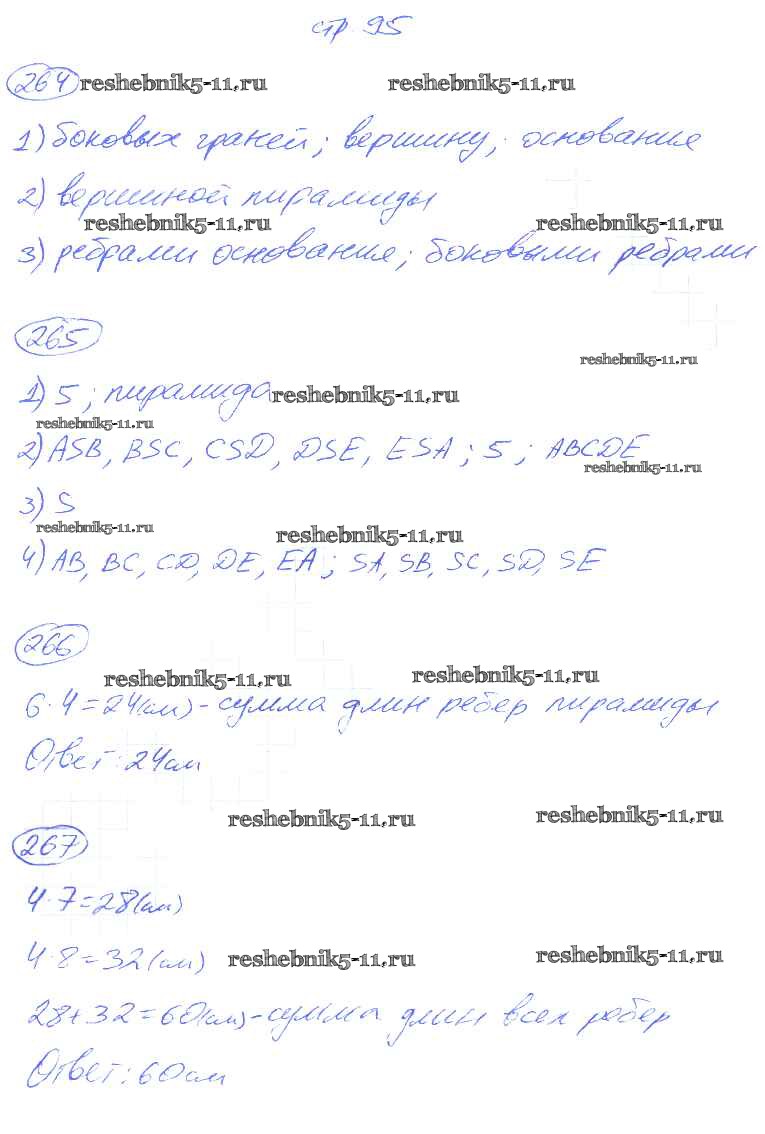 стр. 95
264 reshebnik5-11.ru reshebnik5-11.ru
1) боковых граней; вершину; основания
2) вершиной пирамиды
reshebnik5-11.ru reshebnik5-11.ru
3) ребрами основания; боковыми ребрами
265
reshebnik5-11.ru
1) 5; пирамида reshebnik5-11.ru
reshebnik5-11.ru
2) ASB, BSC, CSD, DSE, ESA; 5; ABCDE
reshebnik5-11.ru
3) S
reshebnik5-11.ru reshebnik5-11.ru
4) AB, BC, CD, DE, EA; SA, SB, SC, SD, SE
266
reshebnik5-11.ru reshebnik5-11.ru
6·4=24(см)-сумма длин ребер пирамиды
Ответ: 24см
reshebnik5-11.ru reshebnik5-11.ru
267
4·7=28(см)
4·8=32(см) reshebnik5-11.ru reshebnik5-11.ru
28+32=60(см)-сумма длин всех ребер
Ответ: 60см